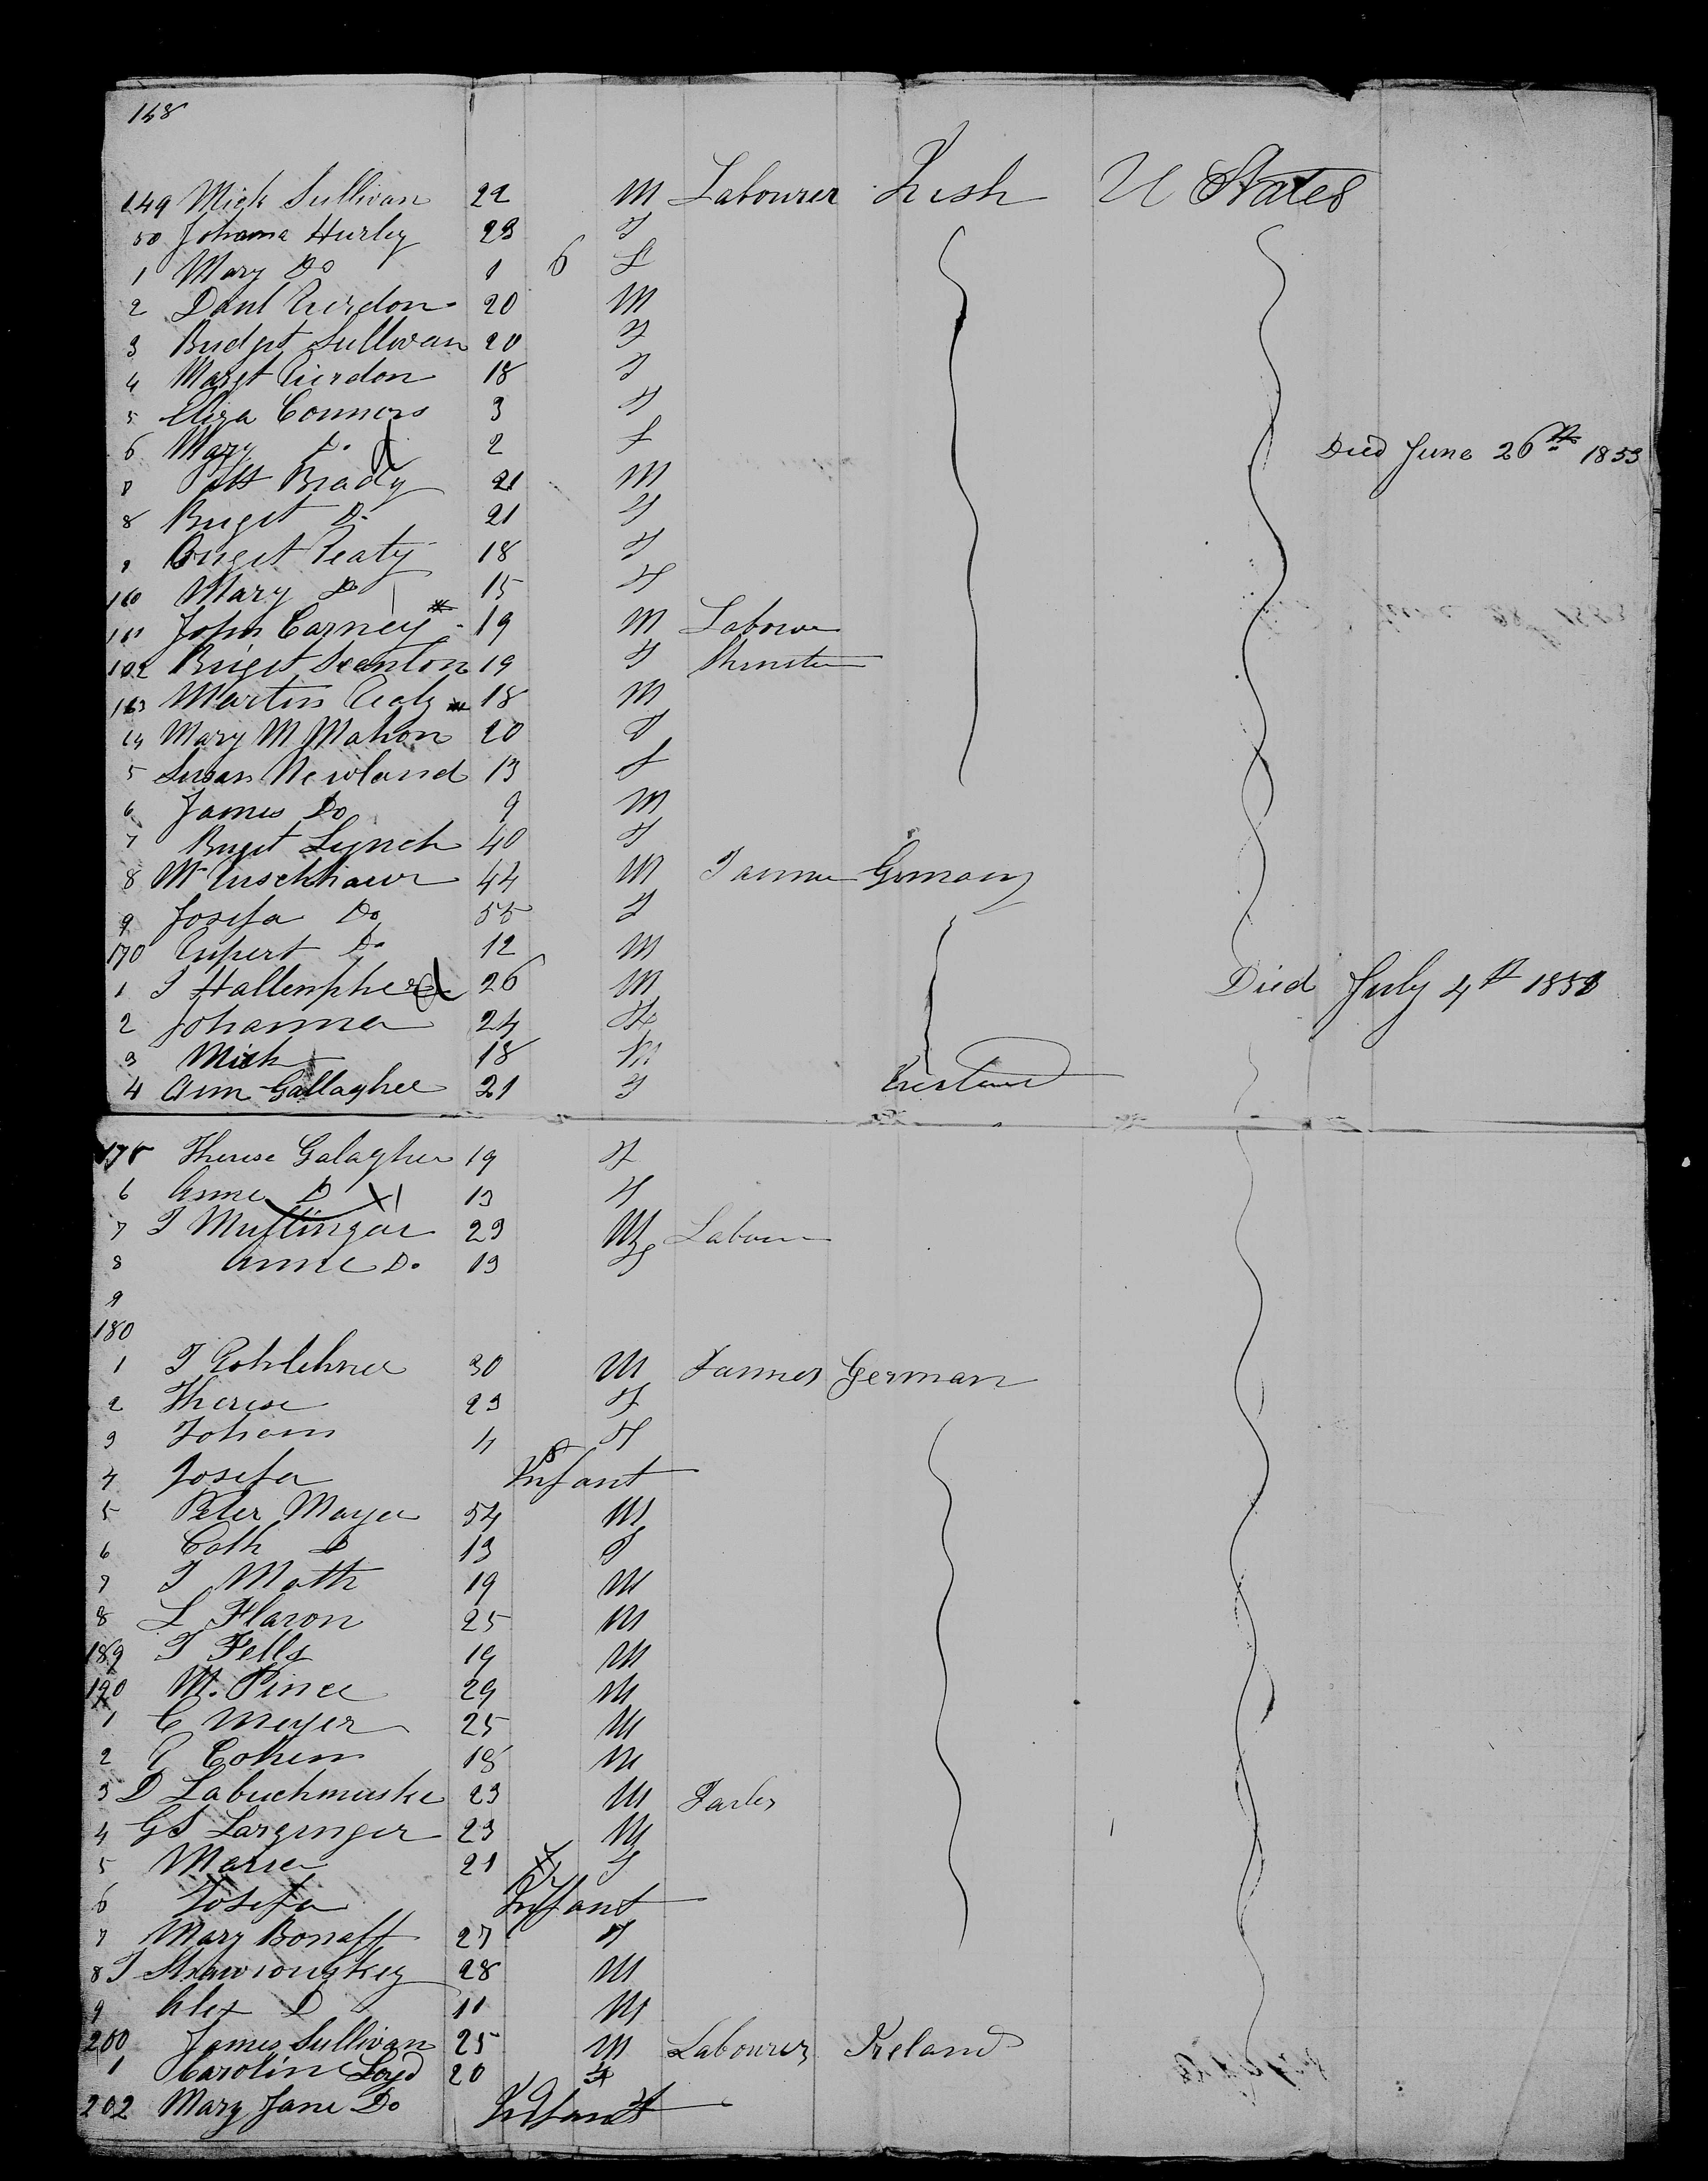 148
149 Mick Sullivan 22 M Labourer Irish U States
50 Johana Hurley 23 F
1 Mary Do 1 6 F
2 Danl Rierdon 20 M
3 Bridget Sullivan 20 F
4 Margt Rierdon 18 F
5 Eliza Connors 3 F
6 Mary Do 2 F Died June 26th 1853
7 Patt Brady 21 M
8 Briget Do 21 F
9 Briget Reaty 18 F
160 Mary Do 15 F
161 John Carney 19 M Labourer
162 Briget Scanlon 19 F
163 Martin 18 M
64 Mary M Mahon 20 F
5 Susan Newland 13 F
6 James Do 9 M
7 Briget Lynch 40 F
8 44 M Farmer Germany
9 Josefa Do 55 F
170 Rupert Do 12 M
1 J 26 M Died July 4th 1853
2 Johanna 24 F
3 Mick 18 M
4 Ann Gallagher 21 F Ireland
175 Therese Galagher 19 F
6 Anne D 13 F
7 J 23 M Labour
8 Anne Do 13 F
9
180
1 J 30 M Farmer German
2 Therese 23 F
3 Johann 4 F
4 Josefa Infant
5 Peter Mayer 54 M
6 Cath D 13 F
7 J Math 19 M
8 L Flaron 25 M
189 J Fells 19 M
190 M. Pince 29 M
1 C Meyer 25 M
2 Cohem 18 M
3 D Labuchmuske 23 M
4 GS 23 M
5 Maria 21 F
6 Josefa Infant
7 Mary Bonaff 27 F
8 J 28 M
9 Alex D 11 M
200 James Sullivan 25 M Labourer Ireland
1 Carolin Loyd 20 F
202 Mary Jane Do Infant